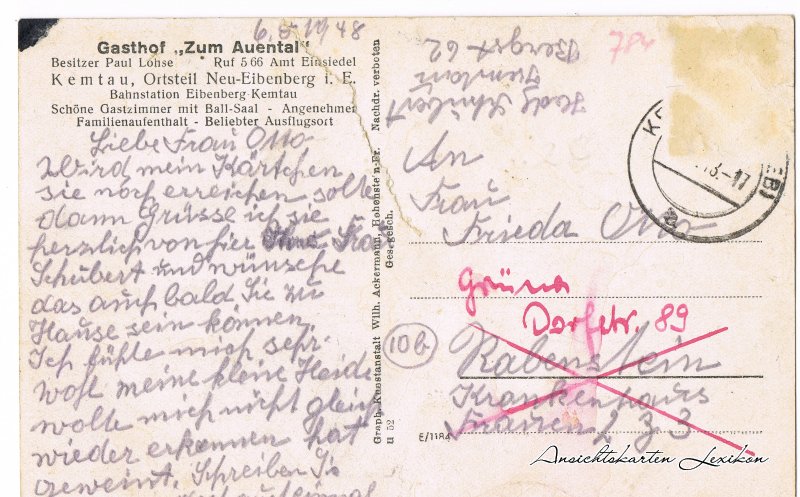 6.5.1948
Gasthof „Zum Auental"
Besitzer Paul Lohse Ruf 566 Amt Einsiedel
Kemtau, Ortsteil Neu-Eibenberg i. E.
Bahnstation Eibenberg-Kemtau
Schöne Gastzimmer mit Ball-Saal - Angenehmer
Familienaufenthalt - Beliebter Ausflugsort
Liebe Frau Otto
Wird mein Kärtchen
sie noch erreichen, sollte
dann Grüsse ich sie
herzlich von hier Frau
Schubert und wünsche
das auch bald Sie zu
Hause sein können.
Ich fühle mich sehr
wohl meine kleine Heide
wollte mich nicht gleich
wieder erkennen hat
geweint. Schreiben Sie
Graph. Kunstanstalt Wilh. Ackermann, Hohenstein-Er. Nachdr. verboten
Ges. gesch.
u 52
Schubert
Kemtau
Bergstr 62
784
An
Frau
Frieda Otto
Grüna
Dorfstr. 89
10b
Rabenstein
Krankenhaus
Frauen 2 Z 3
E/1184
Ansichtskarten Lexikon